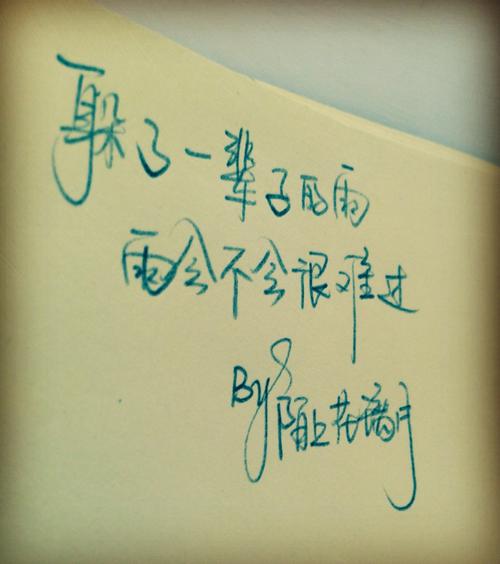 躲了一辈子的雨
雨会不会很难过
By 陌上花璃月